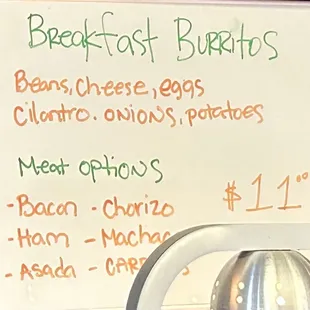 Breakfast Burritos
Beans, cheese, eggs
cilantro. onions, potatoes
Meat options
- Bacon - Chorizo
$11.00
- Ham -
- Asada -